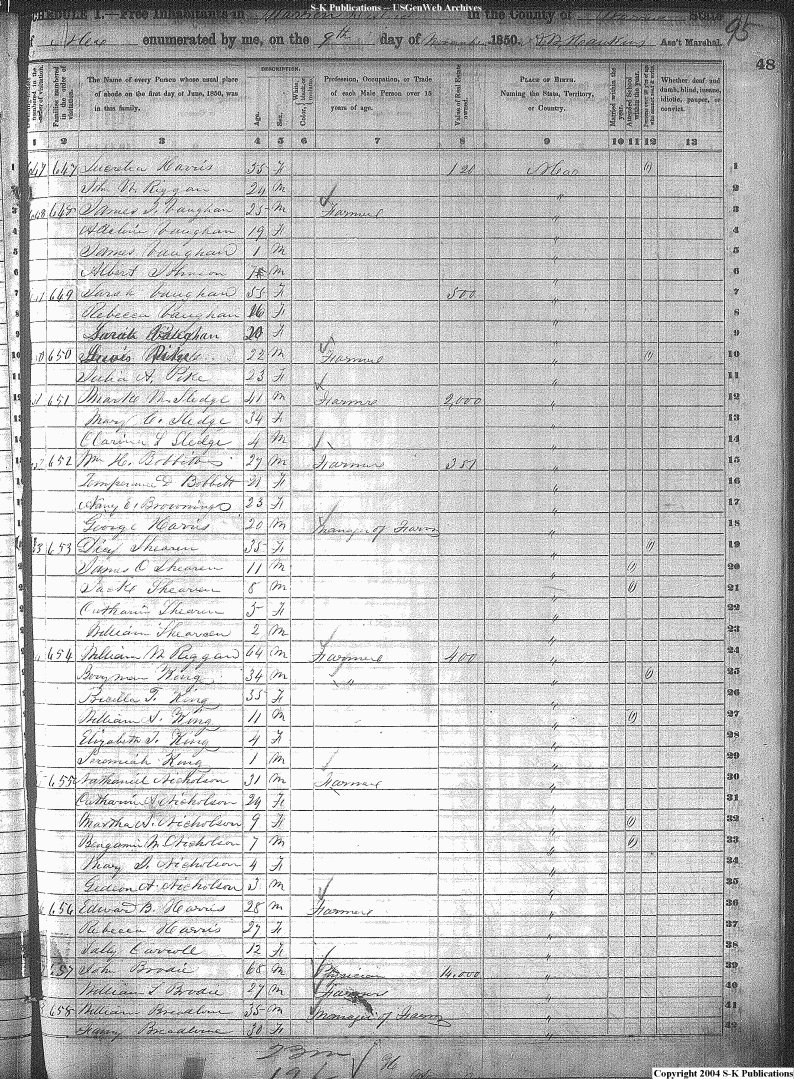 S-K Publications -- USGenWeb Archives
SCHEDULE I.—Free Inhabitants in Warren in the County of Warren State
of N Ca enumerated by me, on the 9th day of November 1850. Ass't Marshal. 95
48
DESCRIPTION.
The Name of every Person whose usual place of abode on the first day of June, 1850, was in this family.
Families numbered in the order of visitation.
Age.
Sex.
Profession, Occupation, or Trade of each Male Person over 15 years of age.
Value of Real Estate owned.
PLACE OF BIRTH. Naming the State, Territory, or Country.
Married within the year.
Attended School within the year.
Whether deaf and dumb, blind, insane, idiotic, pauper, or convict.
1 2 3 4 5 6 7 8 9 10 11 12 13
1 647 647 Lucretia Harris 55 F 120 N Car (1) 1
John W Riggan 24 M " 2
3 648 648 James T Vaughan 25 M Farmer " 3
Adeline Vaughan 19 F " 4
James Vaughan 1 M " 5
Albert Johnson M " 6
649 Sarah Vaughan 55 F 500 " 7
Rebecca Vaughan 16 F " 8
Sarah Vaughan 20 F " 9
10 650 Pike 22 M Farmer " (1) 10
Julia A. Pike 23 F " 11
651 Marke M. Sledge 41 M Farmer 2,000 " 12
Mary C. Sledge 34 F " 13
Clarina L Sledge 4 M " 14
652 Wm H. Bobbitt 27 M Farmer 351 " 15
Temperance D Bobbitt 21 F " 16
Nancy E. Browning 23 F " 17
George Harris 20 M Manager of Farm " 18
653 Dicy Shearen 35 F " (1) 19
James O Shearen 11 M " (1) 20
Jacke Shearen 8 M " (1) 21
Catharin Shearen 5 F " 22
William Shearen 2 M " 23
654 William N Riggan 64 M Farmer 400 " 24
Berryman King 34 M " " (1) 25
Precilla T. King 35 F " 26
William S. King 11 M " (1) 27
Elizabeth J. King 4 F " 28
Jeremiah King 1 M " 29
655 Nathaniel Nicholson 31 M Farmer " 30
Catharine A Nicholson 24 F " 31
Martha A. Nicholson 9 F " (1) 32
Bengamin W. Nicholson 7 M " (1) 33
Mary D. Nicholson 4 F " 34
Gideon A. Nicholson 3 M " 35
656 Edward B. Harris 28 M Farmer " 36
Rebecca Harris 27 F " 37
Sally Carrole 12 F " 38
657 John Brodie 68 M Physician 14,000 " 39
William L Brodie 27 M Farmer " 40
658 William Breedlove 35 M Manager of Farm " 41
Nancy Breedlove 30 F " 42
23 m
Copyright 2004 S-K Publications